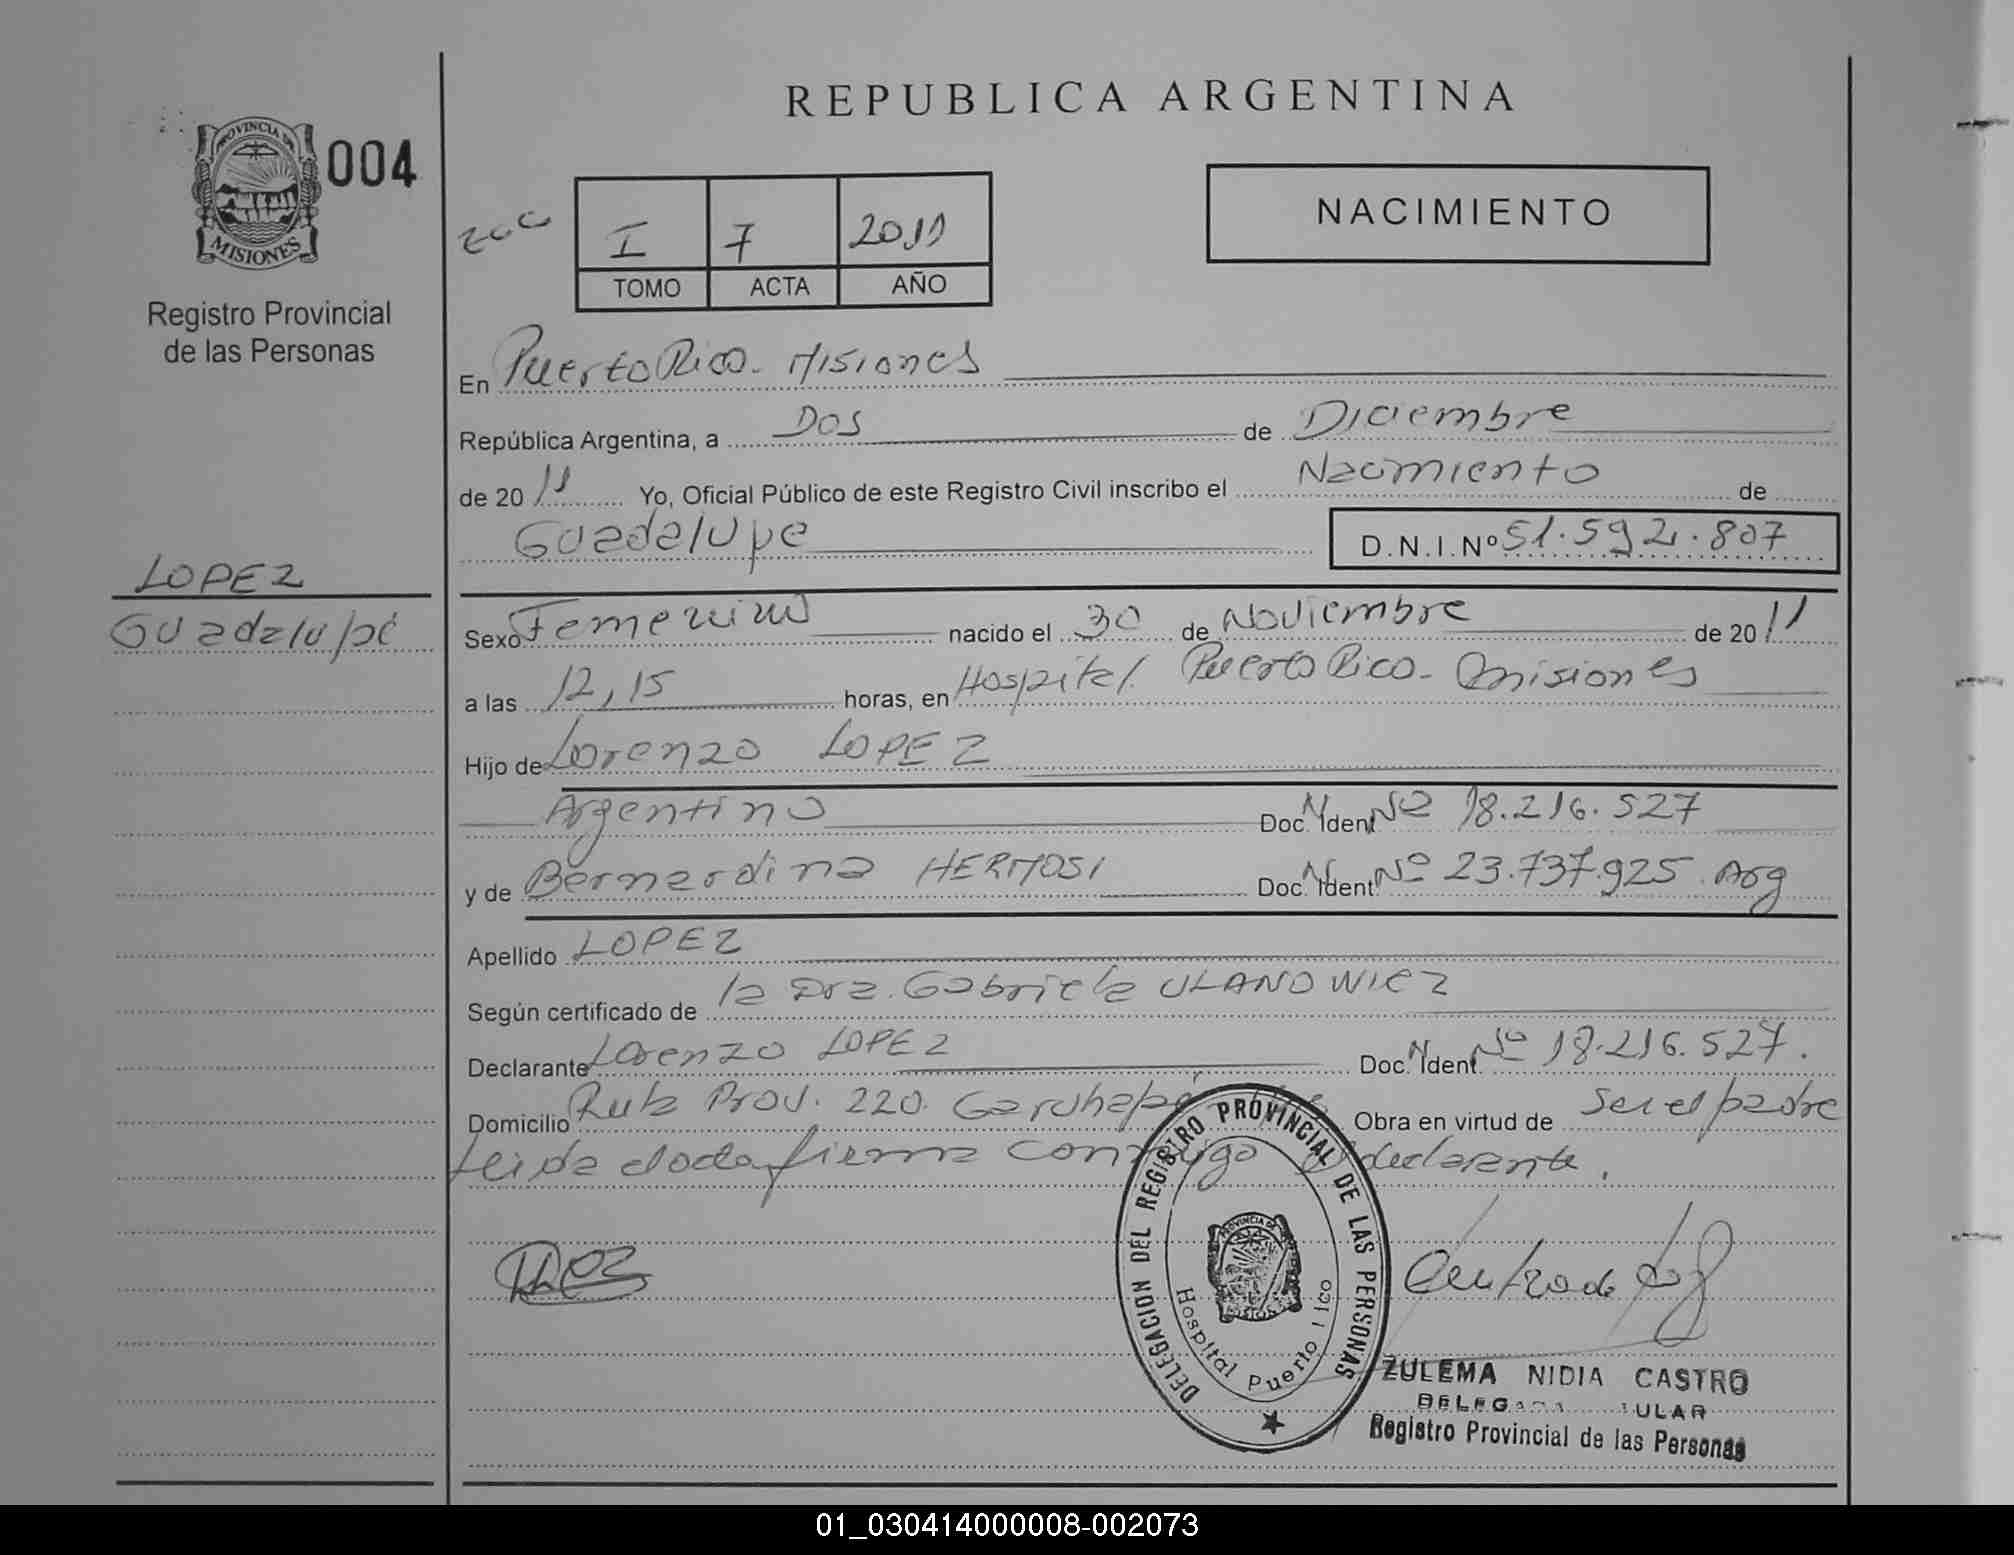 REPUBLICA ARGENTINA
PROVINCIA DE
MISIONES
004
Registro Provincial
de las Personas
I 7 2011
TOMO ACTA AÑO
NACIMIENTO
En Puerto Rico - Misiones
República Argentina, a Dos de Diciembre
de 20 11 Yo, Oficial Público de este Registro Civil inscribo el Nacimiento de
Guadalupe D.N.I.Nº 51.592.807
LOPEZ
Guadalupe
Sexo Femenino nacido el 30 de Noviembre de 20 11
a las 12,15 horas, en Hospital Puerto Rico - Misiones
Hijo de Lorenzo LOPEZ
Argentino Doc. Ident Nº 18.216.527
y de Bernardina HERMOSI Doc. Ident Nº 23.737.925 Arg
Apellido LOPEZ
Según certificado de la Dra. Gabriela ULANOWICZ
Declarante Lorenzo LOPEZ Doc. Ident Nº 18.216.527.
Domicilio Ruta Prov. 220. Garuhapé Obra en virtud de Ser el padre
Leida el acta firma conmigo el declarante.
DELEGACION DEL REGISTRO PROVINCIAL DE LAS PERSONAS
PROVINCIA DE
Hospital Puerto
ZULEMA NIDIA CASTRO
Registro Provincial de las Personas
01_030414000008-002073